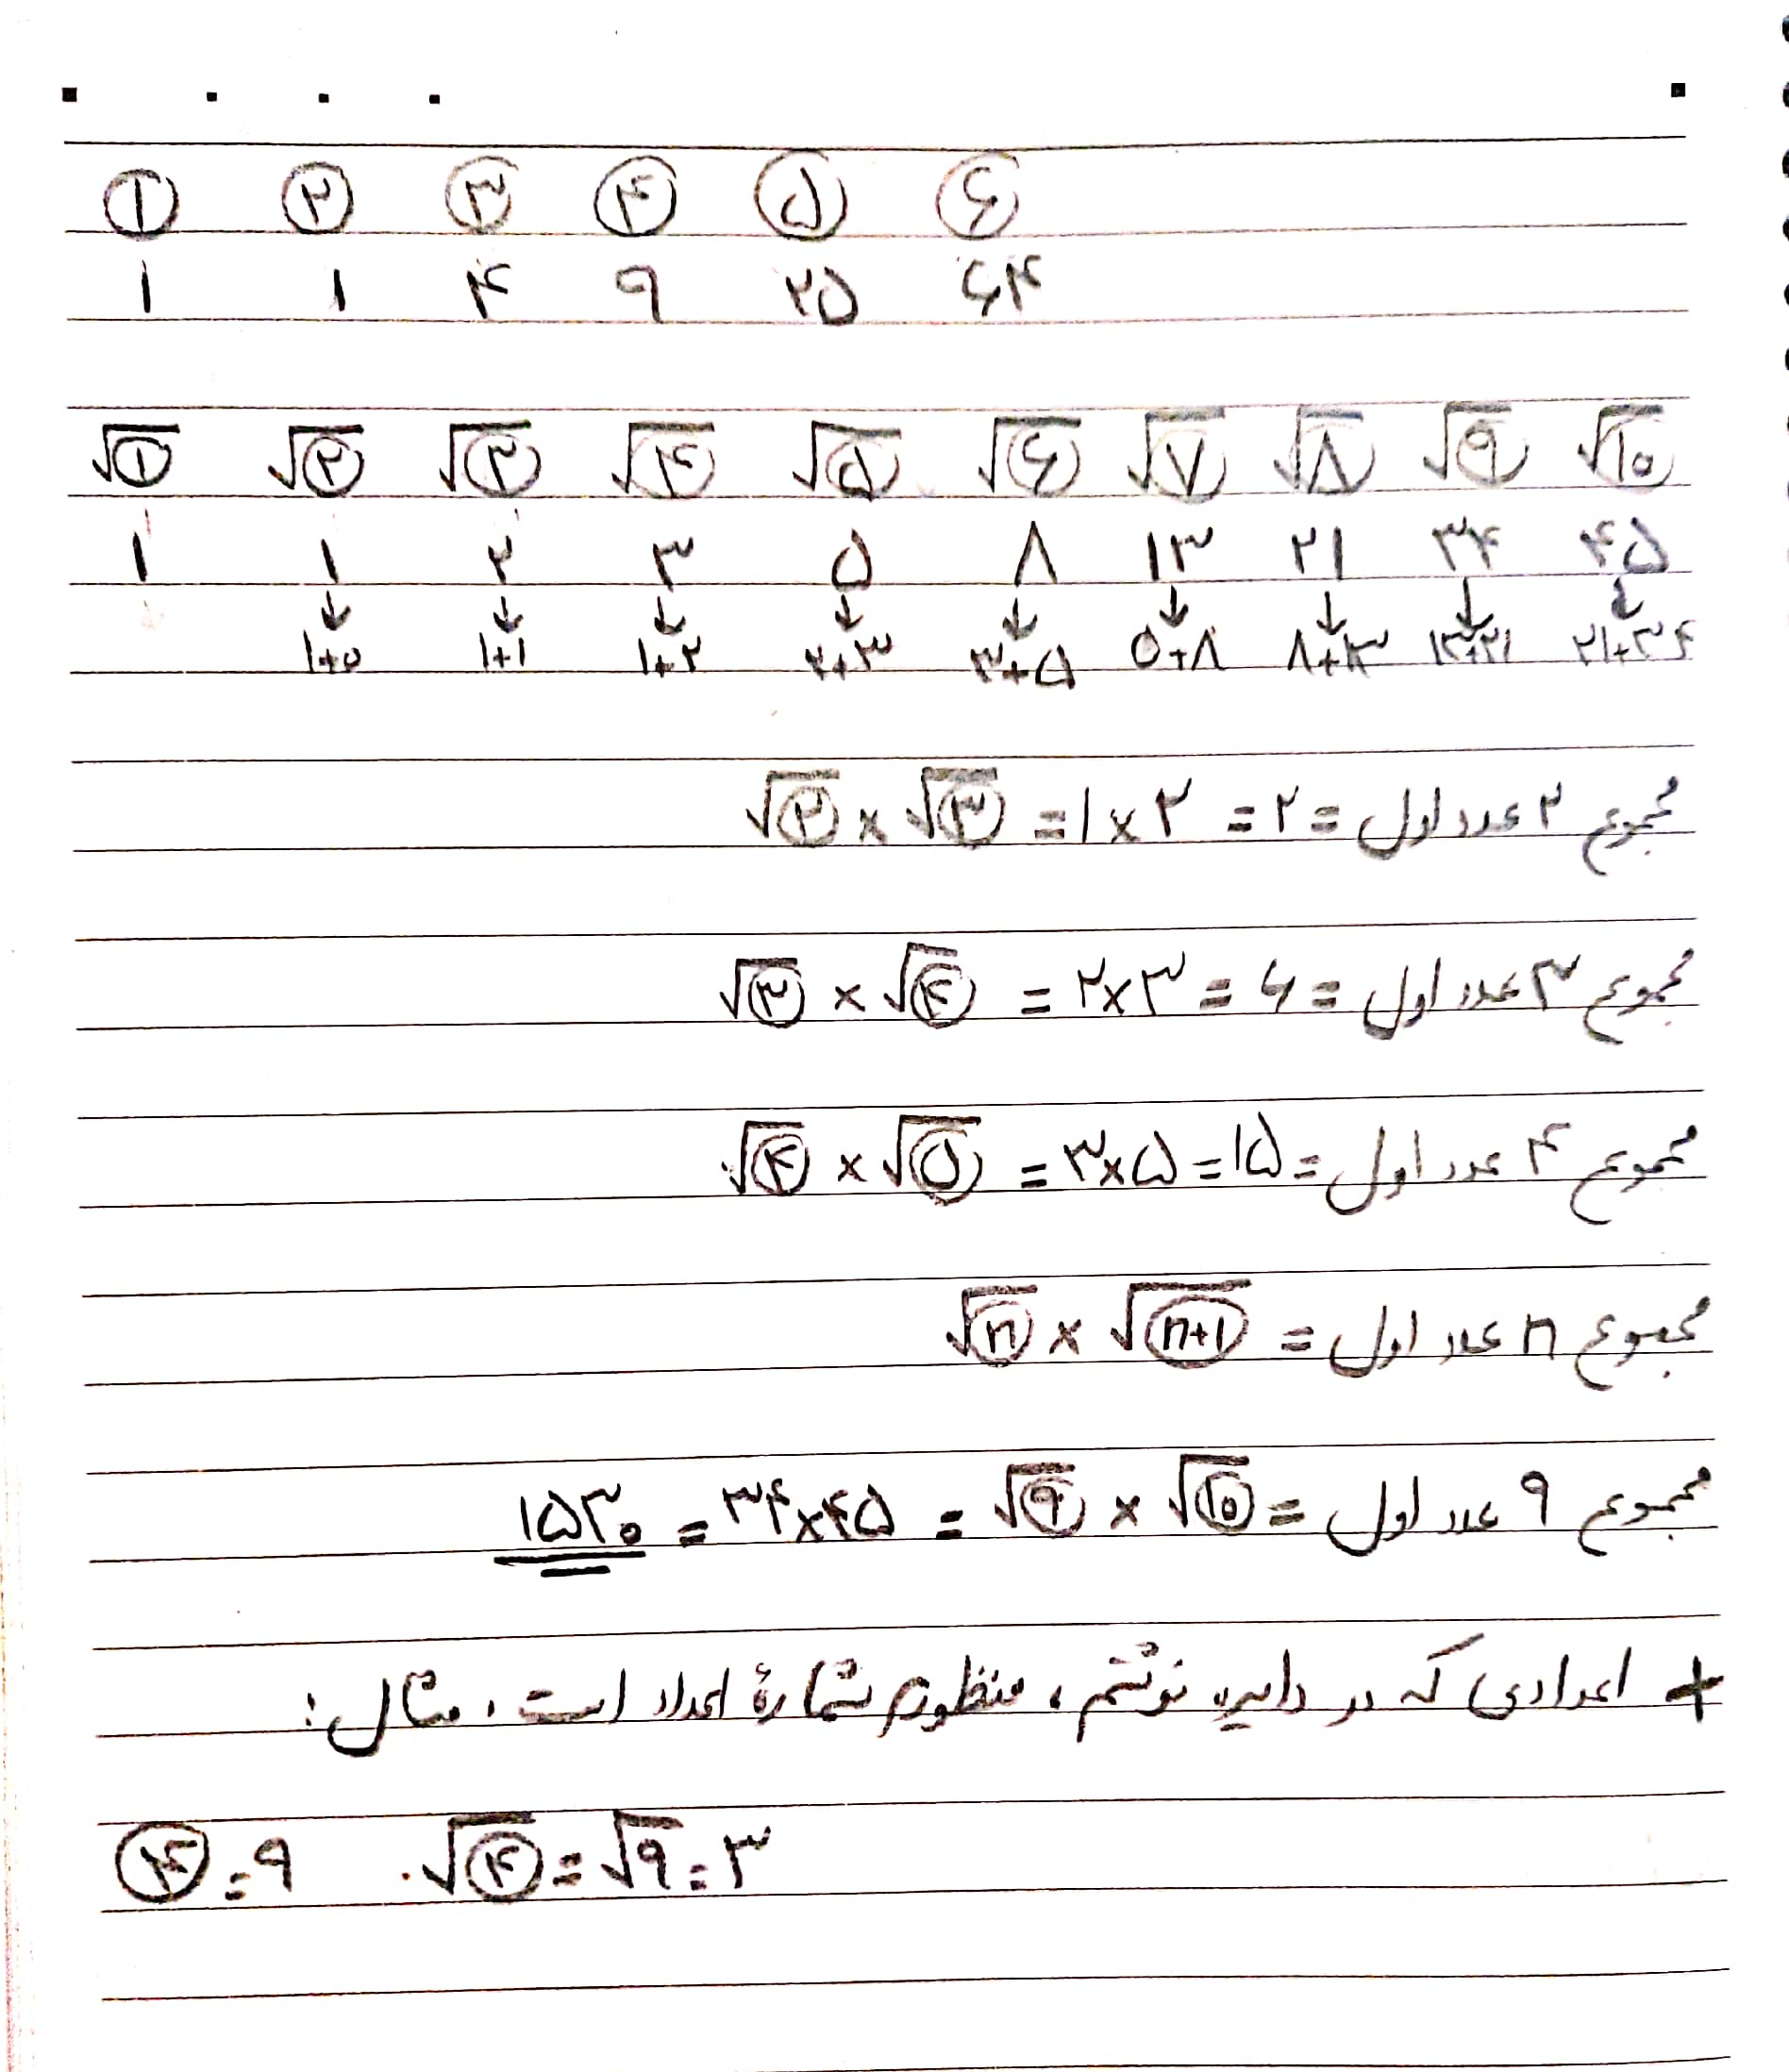 ① ② ③ ④ ⑤ ⑥
۱ ۱ ۴ ۹ ۲۵ ۶۴
√① √② √③ √④ √⑤ √⑥ √⑦ √⑧ √⑨ √⑩
۱ ۱ ۲ ۳ ۵ ۸ ۱۳ ۲۱ ۳۴ ۴۵
↓ ↓ ↓ ↓ ↓ ↓ ↓ ↓ ↓
۱+۰ ۱+۱ ۱+۲ ۲+۳ ۳+۵ ۵+۸ ۸+۱۳ ۱۳+۲۱ ۲۱+۳۴
مجموع ۲ عدد اول = ۲ = ۱×۲ = √② × √③
مجموع ۳ عدد اول = ۶ = ۲×۳ = √③ × √④
مجموع ۴ عدد اول = ۱۵ = ۳×۵ = √④ × √⑤
مجموع n عدد اول = √ⓝ × √(n+1)
مجموع ۹ عدد اول = √⑨ × √⑩ = ۳۴×۴۵ = ۱۵۳۰
+ اعدادی که در دایره نوشتم، منظورم شمارۀ اعداد است. مثال:
④=۹ . √④=√۹=۳